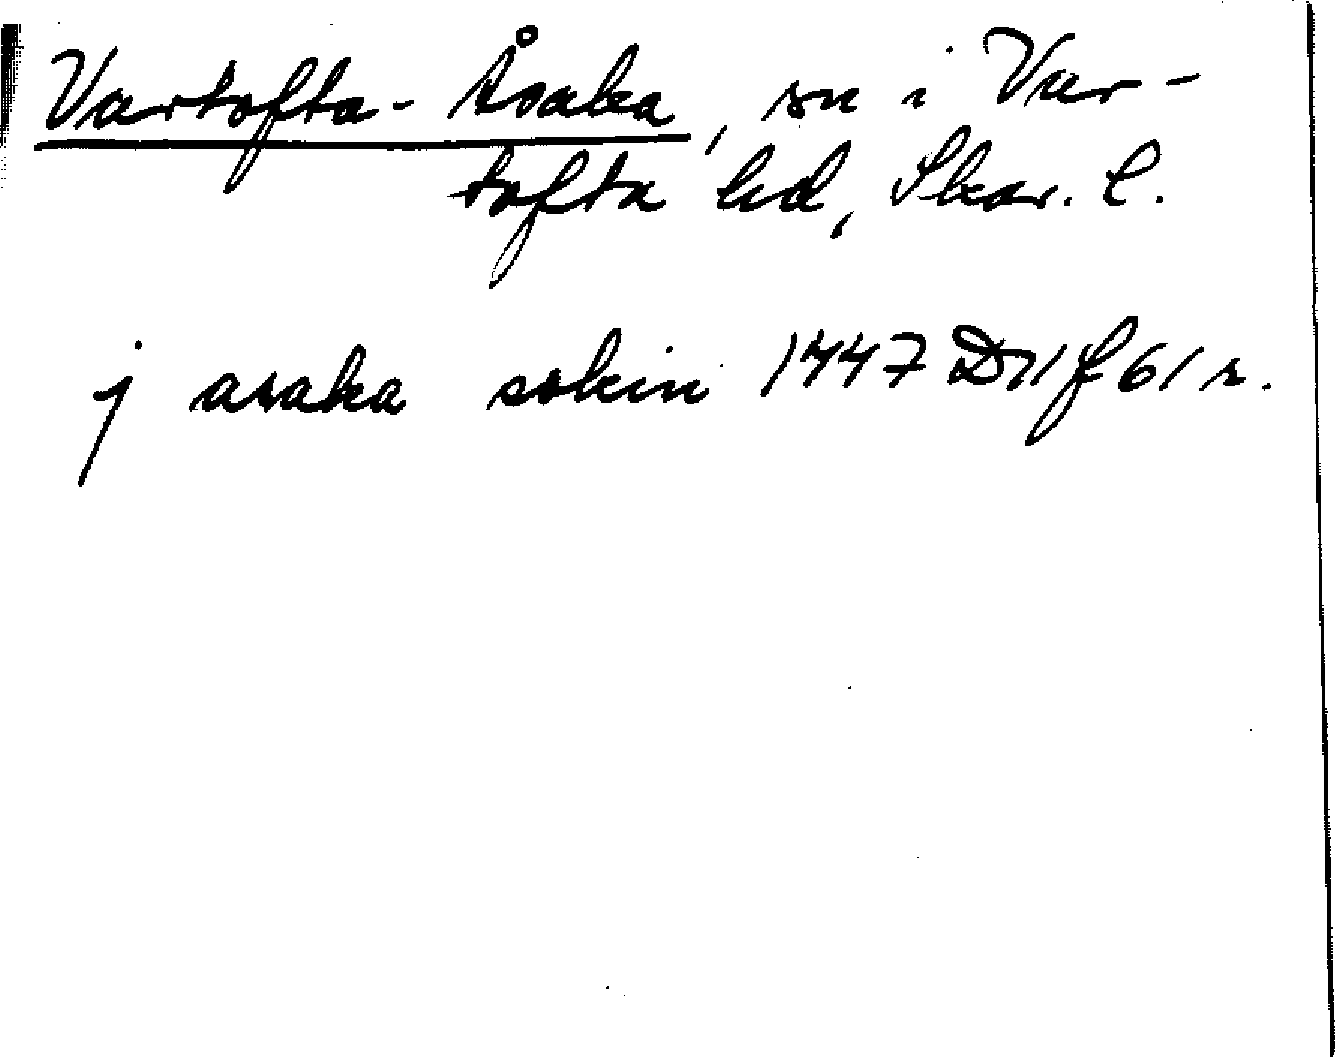 Vartofta-Åsaka, sn i Var-
tofta hd, Skar. l.
j asaka sokin 1447 D11 f 61 r.